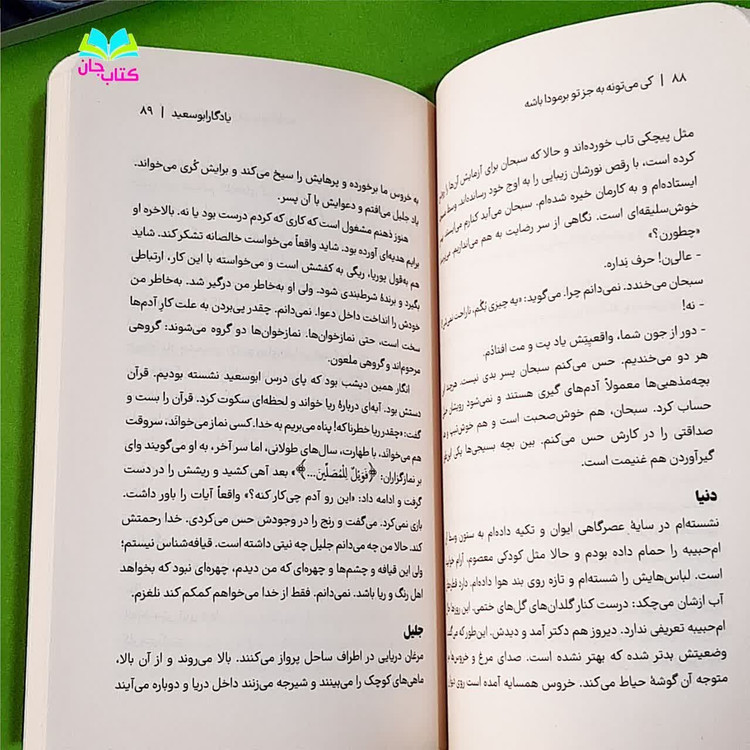 کتاب جان
۸۸ | کی می‌تونه به جز تو برمودا باشه
مثل پیچکی تاب خورده‌اند و حالا که سبحان برای آزمایش آن‌ها را
کرده است، با رقص نورشان زیبایی را به اوج خود رسانده‌اند. وسط
ایستاده‌ام و به کارمان خیره شده‌ام. سبحان می‌آید کنارم می‌ایستد.
خوش‌سلیقه‌ای است. نگاهی از سر رضایت به هم می‌اندازیم.
«چطورن؟»
- عالی‌ن! حرف نداره.
سبحان می‌خندد. نمی‌دانم چرا. می‌گوید: «یه چیزی بگم، ناراحت
- نه!
- دور از جون شما، واقعیتِش یاد پت و مت افتادم.
هر دو می‌خندیم. حس می‌کنم سبحان پسر بدی نیست.
بچه‌مذهبی‌ها معمولاً آدم‌های گیری هستند و نمی‌شود
حساب کرد. سبحان، هم خوش‌صحبت است و هم
صداقتی را در کارش حس می‌کنم. بین بچه بسیجی‌ها
گیرآوردن هم غنیمت است.
دنیا
نشسته‌ام در سایهٔ عصرگاهی ایوان و تکیه داده‌ام به ستون وسط
ام‌حبیبه را حمام داده بودم و حالا مثل کودکی معصوم، آرام
است. لباس‌هایش را شسته‌ام و تازه روی بند هوا داده‌ام. دارد
آب ازشان می‌چکد؛ درست کنار گلدان‌های گل‌های ختمی. این روزها
ام‌حبیبه تعریفی ندارد. دیروز هم دکتر آمد و دیدش. این‌طور که
وضعیتش بدتر شده که بهتر نشده است. صدای مرغ و خروس‌ها
متوجه آن گوشهٔ حیاط می‌کند. خروس همسایه آمده است روی
یادگار ابوسعید | ۸۹
به خروس ما برخورده و پرهایش را سیخ می‌کند و برایش کُری می‌خواند.
یاد جلیل می‌افتم و دعوایش با آن پسر.
هنوز ذهنم مشغول است که کاری که کردم درست بود یا نه. بالاخره او
برایم هدیه‌ای آورده بود. شاید واقعاً می‌خواست خالصانه تشکر کند. شاید
هم به‌قول پوریا، ریگی به کفشش است و می‌خواسته با این کار، ارتباطی
بگیرد و برندهٔ شرط‌بندی شود. ولی او به‌خاطر من درگیر شد. به‌خاطر من
خودش را انداخت داخل دعوا. نمی‌دانم. چقدر پی‌بردن به علت کارِ آدم‌ها
سخت است، حتی نمازخوان‌ها. نمازخوان‌ها دو گروه می‌شوند: گروهی
مرحوم‌اند و گروهی ملعون.
انگار همین دیشب بود که پای درس ابوسعید نشسته بودیم. قرآن
دستش بود. آیه‌ای دربارهٔ ریا خواند و لحظه‌ای سکوت کرد. قرآن را بست و
گفت: «چقدر ریا خطرناکه! پناه می‌بریم به خدا. کسی نماز می‌خواند، سروقت
هم می‌خواند، با طهارت، سال‌های طولانی، اما سر آخر، به او می‌گویند وای
بر نمازگزاران: ﴿فَوَيْلٌ لِلْمُصَلِّينَ...﴾» بعد آهی کشید و ریشش را در دست
گرفت و ادامه داد: «این رو آدم چی‌کار کنه؟» واقعاً آیات را باور داشت.
بازی نمی‌کرد. می‌گفت و رنج را در وجودش حس می‌کردی. خدا رحمتش
کند. حالا من چه می‌دانم جلیل چه نیتی داشته است. قیافه‌شناس نیستم؛
ولی این قیافه و چشم‌ها و چهره‌ای که من دیدم، چهره‌ای نبود که بخواهد
اهل رنگ و ریا باشد. نمی‌دانم. فقط از خدا می‌خواهم کمکم کند نلغزم.
جلیل
مرغان دریایی در اطراف ساحل پرواز می‌کنند. بالا می‌روند و از آن بالا،
ماهی‌های کوچک را می‌بینند و شیرجه می‌زنند داخل دریا و دوباره می‌آیند